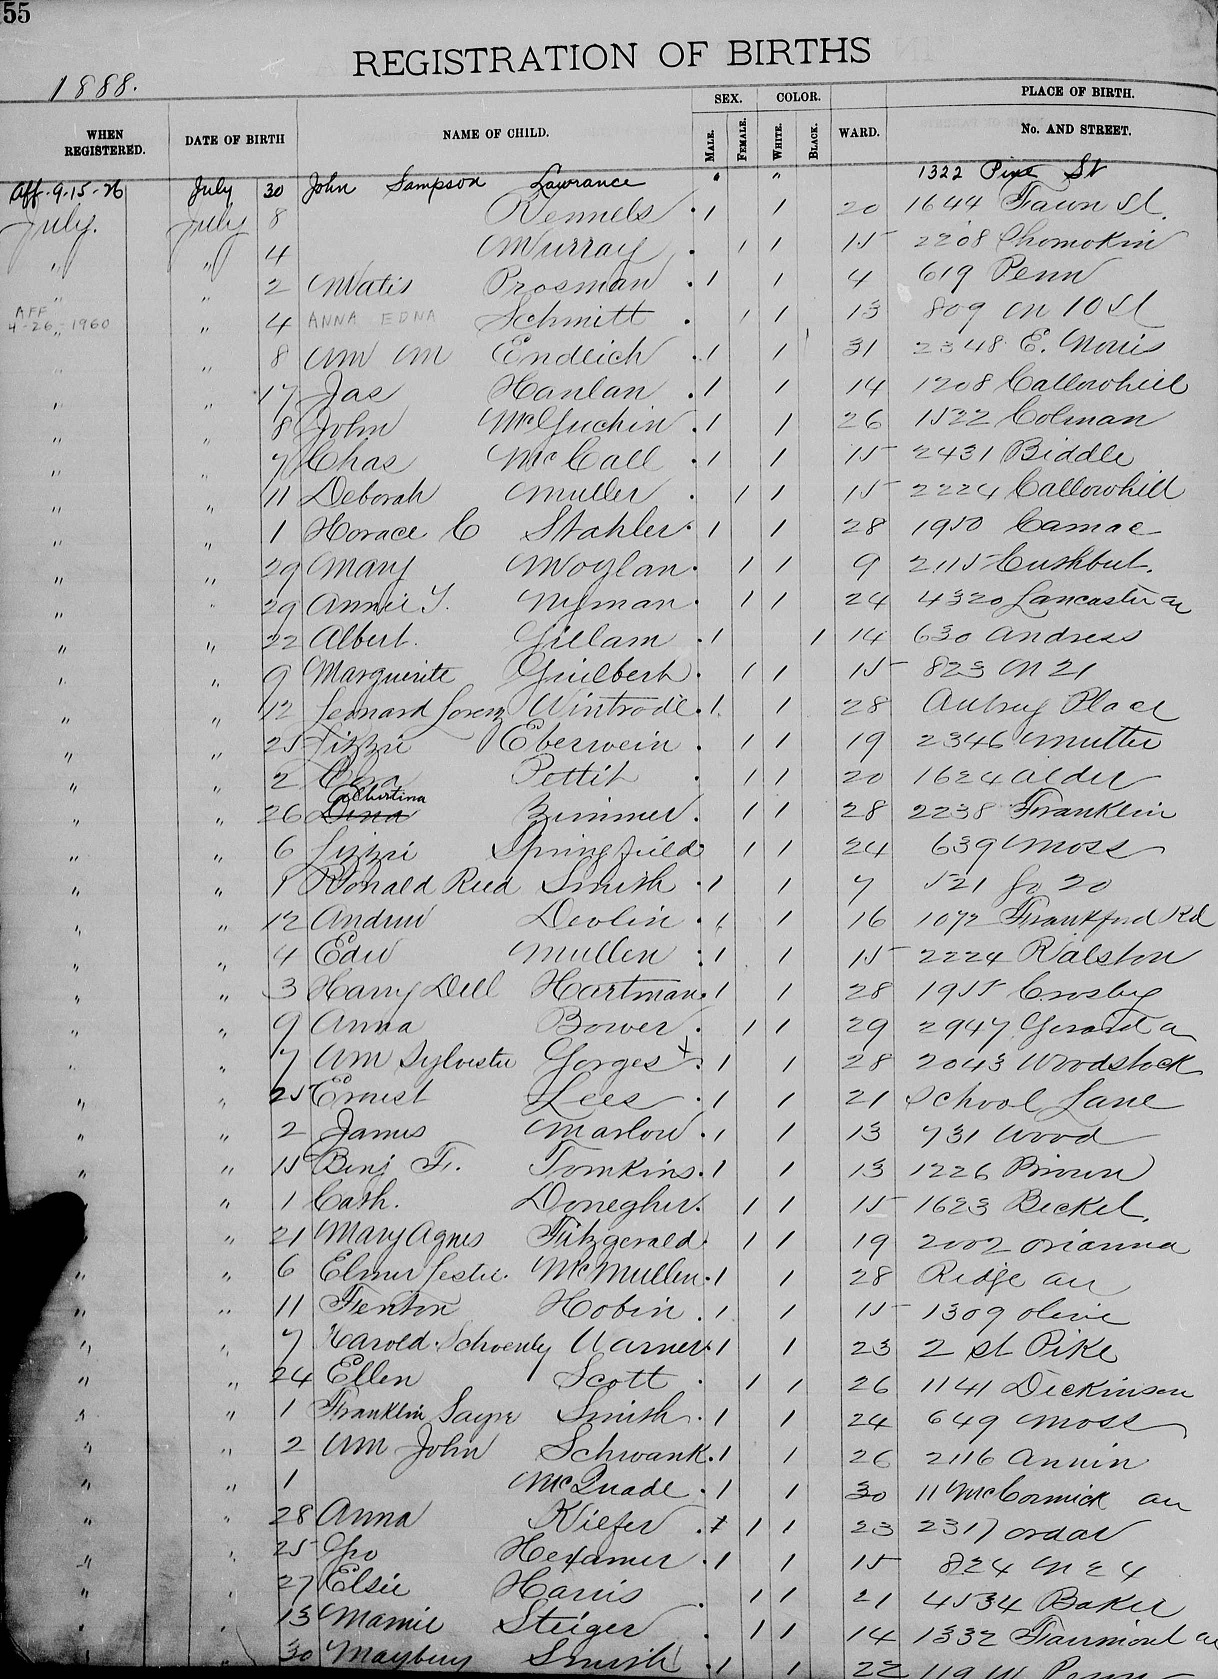 55
REGISTRATION OF BIRTHS
1888.
SEX. COLOR. PLACE OF BIRTH.
WHEN REGISTERED. DATE OF BIRTH NAME OF CHILD. MALE. FEMALE. WHITE. BLACK. WARD. No. AND STREET.
Aff. 9-15-26 July 30 John Sampson Lawrance " " 1322 Pine St
July. July 8 Rennels 1 1 20 1644 Fawn St.
" " 4 Murray 1 1 15 2208 Shomokin
" " 2 Matis Prosman 1 1 4 619 Penn
AFF 4-26-1960 " " 4 ANNA EDNA Schmitt 1 1 13 809 N 10 St
" 8 Wm Wm Endlich 1 1 31 2348 E. Norris
" " 17 Jas Hanlan 1 1 14 1208 Callowhill
" " 8 John McGuchin 1 1 26 1522 Colman
" " 7 Chas McCall 1 1 15 2431 Biddle
" " 11 Deborah Muller 1 1 15 2224 Callowhill
" " 1 Horace C Stahler 1 1 28 1950 Camac
" " 29 Mary Moylan 1 1 9 2115 Cushbut.
" " 29 Annie T. Nyman 1 1 24 4320 Lancaster av
" " 22 Albert. Gillam 1 1 14 630 Andress
" " 9 Marguerite Guilbert 1 1 15 823 N 21
" " 12 Leonard Lorenz Wintrode 1 1 28 Aubrey Place
" " 25 Lizzie Eberwein 1 1 19 2346 Mutter
" " 2 Pettit 1 1 20 1624 Alder
" " 26 Albertina Dina Zimmer 1 1 28 2238 Franklin
" " 6 Lizzie Springfield 1 1 24 639 Moss
" " 1 Ronald Reed Smith 1 1 7 521 So 20
" " 12 Andrew Devlin 1 1 16 1072 Frankford Rd
" " 4 Edw Mullen 1 1 15 2224 Ralston
" " 3 Harry Dell Hartman 1 1 28 1955 Crosby
" " 9 Anna Bower 1 1 29 2947 Gerard a
" " 17 Wm Sylvester Gorges x 1 1 28 2043 Woodstock
" " 25 Ernest Lees 1 1 21 School Lane
" " 2 James Marlow 1 1 13 731 Wood
" " 15 Benj F. Tomkins 1 1 13 1226 Brown
" " 1 Cath. Donegher 1 1 15 1623 Beckel.
" " 21 Mary Agnes Fitzgerald 1 1 19 2002 Orianna
" " 6 Elmer Leslie McMullen 1 1 28 Ridge av
" " 11 Fenton Hobin 1 1 15 1309 Olive
" " 7 Harold Schoenly Warner 1 1 23 2 st Pike
" " 24 Ellen Scott 1 1 26 1141 Dickinson
" " 1 Franklin Sayre Smith 1 1 24 649 Moss
" " 2 Wm John Schwank 1 1 26 2116 Annin
" " 1 McQuade 1 1 30 11 McCormick av
" " 28 Anna Kiefer x 1 1 23 2317 Ordar
" " 25 Geo Hexamer 1 1 15 824 N 24
" " 27 Elsie Harris 1 1 21 4534 Baker
" " 13 Mamie Steiger 1 1 14 1332 Fairmont av
" " 30 Maybury Smith 1 1 22 119 W Penn